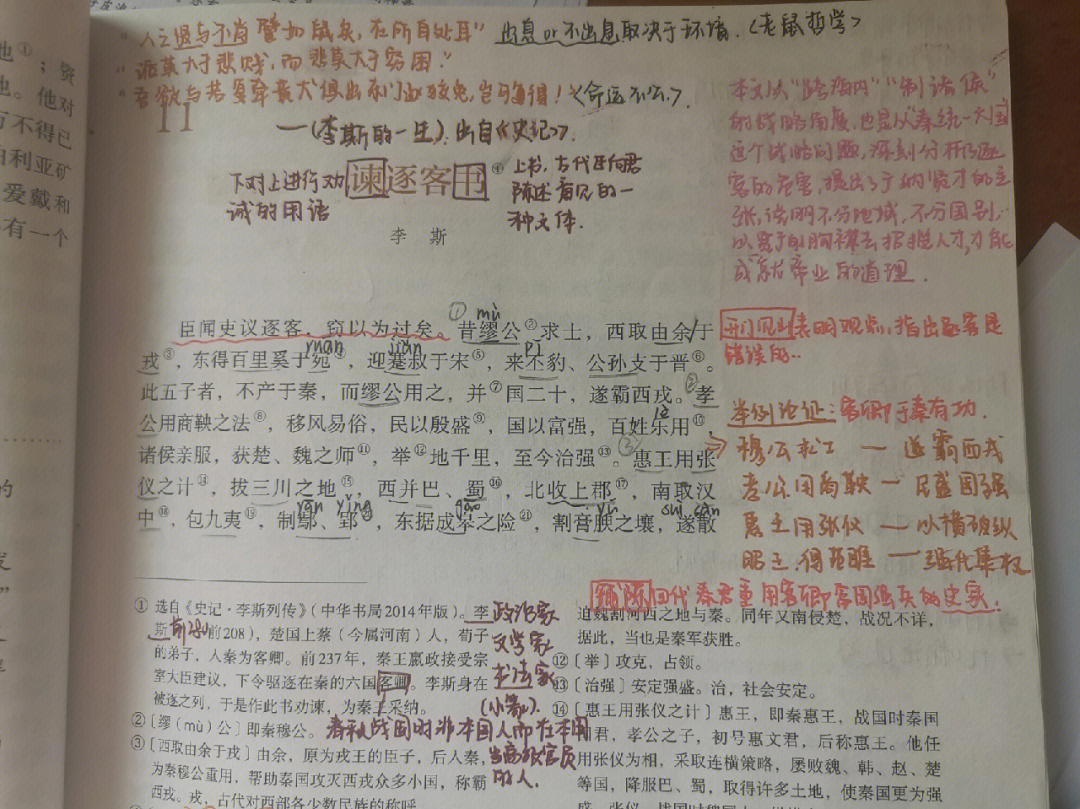 "人之贤与不肖譬如鼠矣，在所自处耳" 出息or不出息取决于环境.《老鼠哲学》
"诟莫大于卑贱，而悲莫大于穷困."
"吾欲与若复牵黄犬俱出东门逐狡兔，岂可得！"《命运不公》
11
——(李斯的一生)出自《史记》.
下对上进行劝
诫的用语
谏逐客书④
上书，古代臣向君
陈述意见的一
种文体.
李 斯
本文从"跨海内""制诸侯"
的战略角度，也是从"秦统一大国
这个战略问题，深刻分析了逐
客的危害，提出了广纳贤才的主
张，说明不分地域，不分国别，
以宽广的胸襟去招揽人才，才能
成就帝业的道理.
① mù
臣闻吏议逐客，窃以为过矣。昔缪公②求士，西取由余于
yuān jiǎn pī
戎③，东得百里奚于宛④，迎蹇叔于宋⑤，来丕豹、公孙支于晋⑥。
此五子者，不产于秦，而缪公用之，并⑦国二十，遂霸西戎。②孝
公用商鞅之法⑧，移风易俗，民以殷盛⑨，国以富强，百姓乐用⑩，
诸侯亲服，获楚、魏之师⑪，举⑫地千里，至今治强⑬。③惠王用张
仪之计⑭，拔三川之地⑮，西并巴、蜀⑯，北收上郡⑰，南取汉
yān yǐng gāo yú
中⑱，包九夷⑲，制鄢、郢⑳，东据成皋之险㉑，割膏腴之壤，遂散
开门见山 表明观点，指出逐客是
错误的..
举例论证：客卿于秦有功.
穆公求士 — 遂霸西戎
孝公用商鞅 — 民盛国强
惠王用张仪 — 以横破纵
昭王得范雎 — 强化集权
铺陈 四代秦君重用客卿富国强兵的史实.
① 选自《史记·李斯列传》（中华书局2014年版）。李
斯（前208），楚国上蔡（今属河南）人，荀子
的弟子，入秦为客卿。前237年，秦王嬴政接受宗
室大臣建议，下令驱逐在秦的六国客卿。李斯身在
被逐之列，于是作此书劝谏，为秦王采纳。
政治家
文学家
书法家
(小篆).
②〔缪（mù）公〕即秦穆公。
春秋战国时非本国人而在本国
当高级官员
的人.
③〔西取由余于戎〕由余，原为戎王的臣子，后入秦，
为秦穆公重用，帮助秦国攻灭西戎众多小国，称霸
西戎。戎，古代对西部各少数民族的称呼
迫魏割河西之地与秦。同年又南侵楚，战况不详，
据此，当也是秦军获胜。
⑫〔举〕攻克，占领。
⑬〔治强〕安定强盛。治，社会安定。
⑭〔惠王用张仪之计〕惠王，即秦惠王，战国时秦国
国君，孝公之子，初号惠文君，后称惠王。他任
用张仪为相，采取连横策略，屡败魏、韩、赵、楚
等国，降服巴、蜀，取得许多土地，使秦国更为强